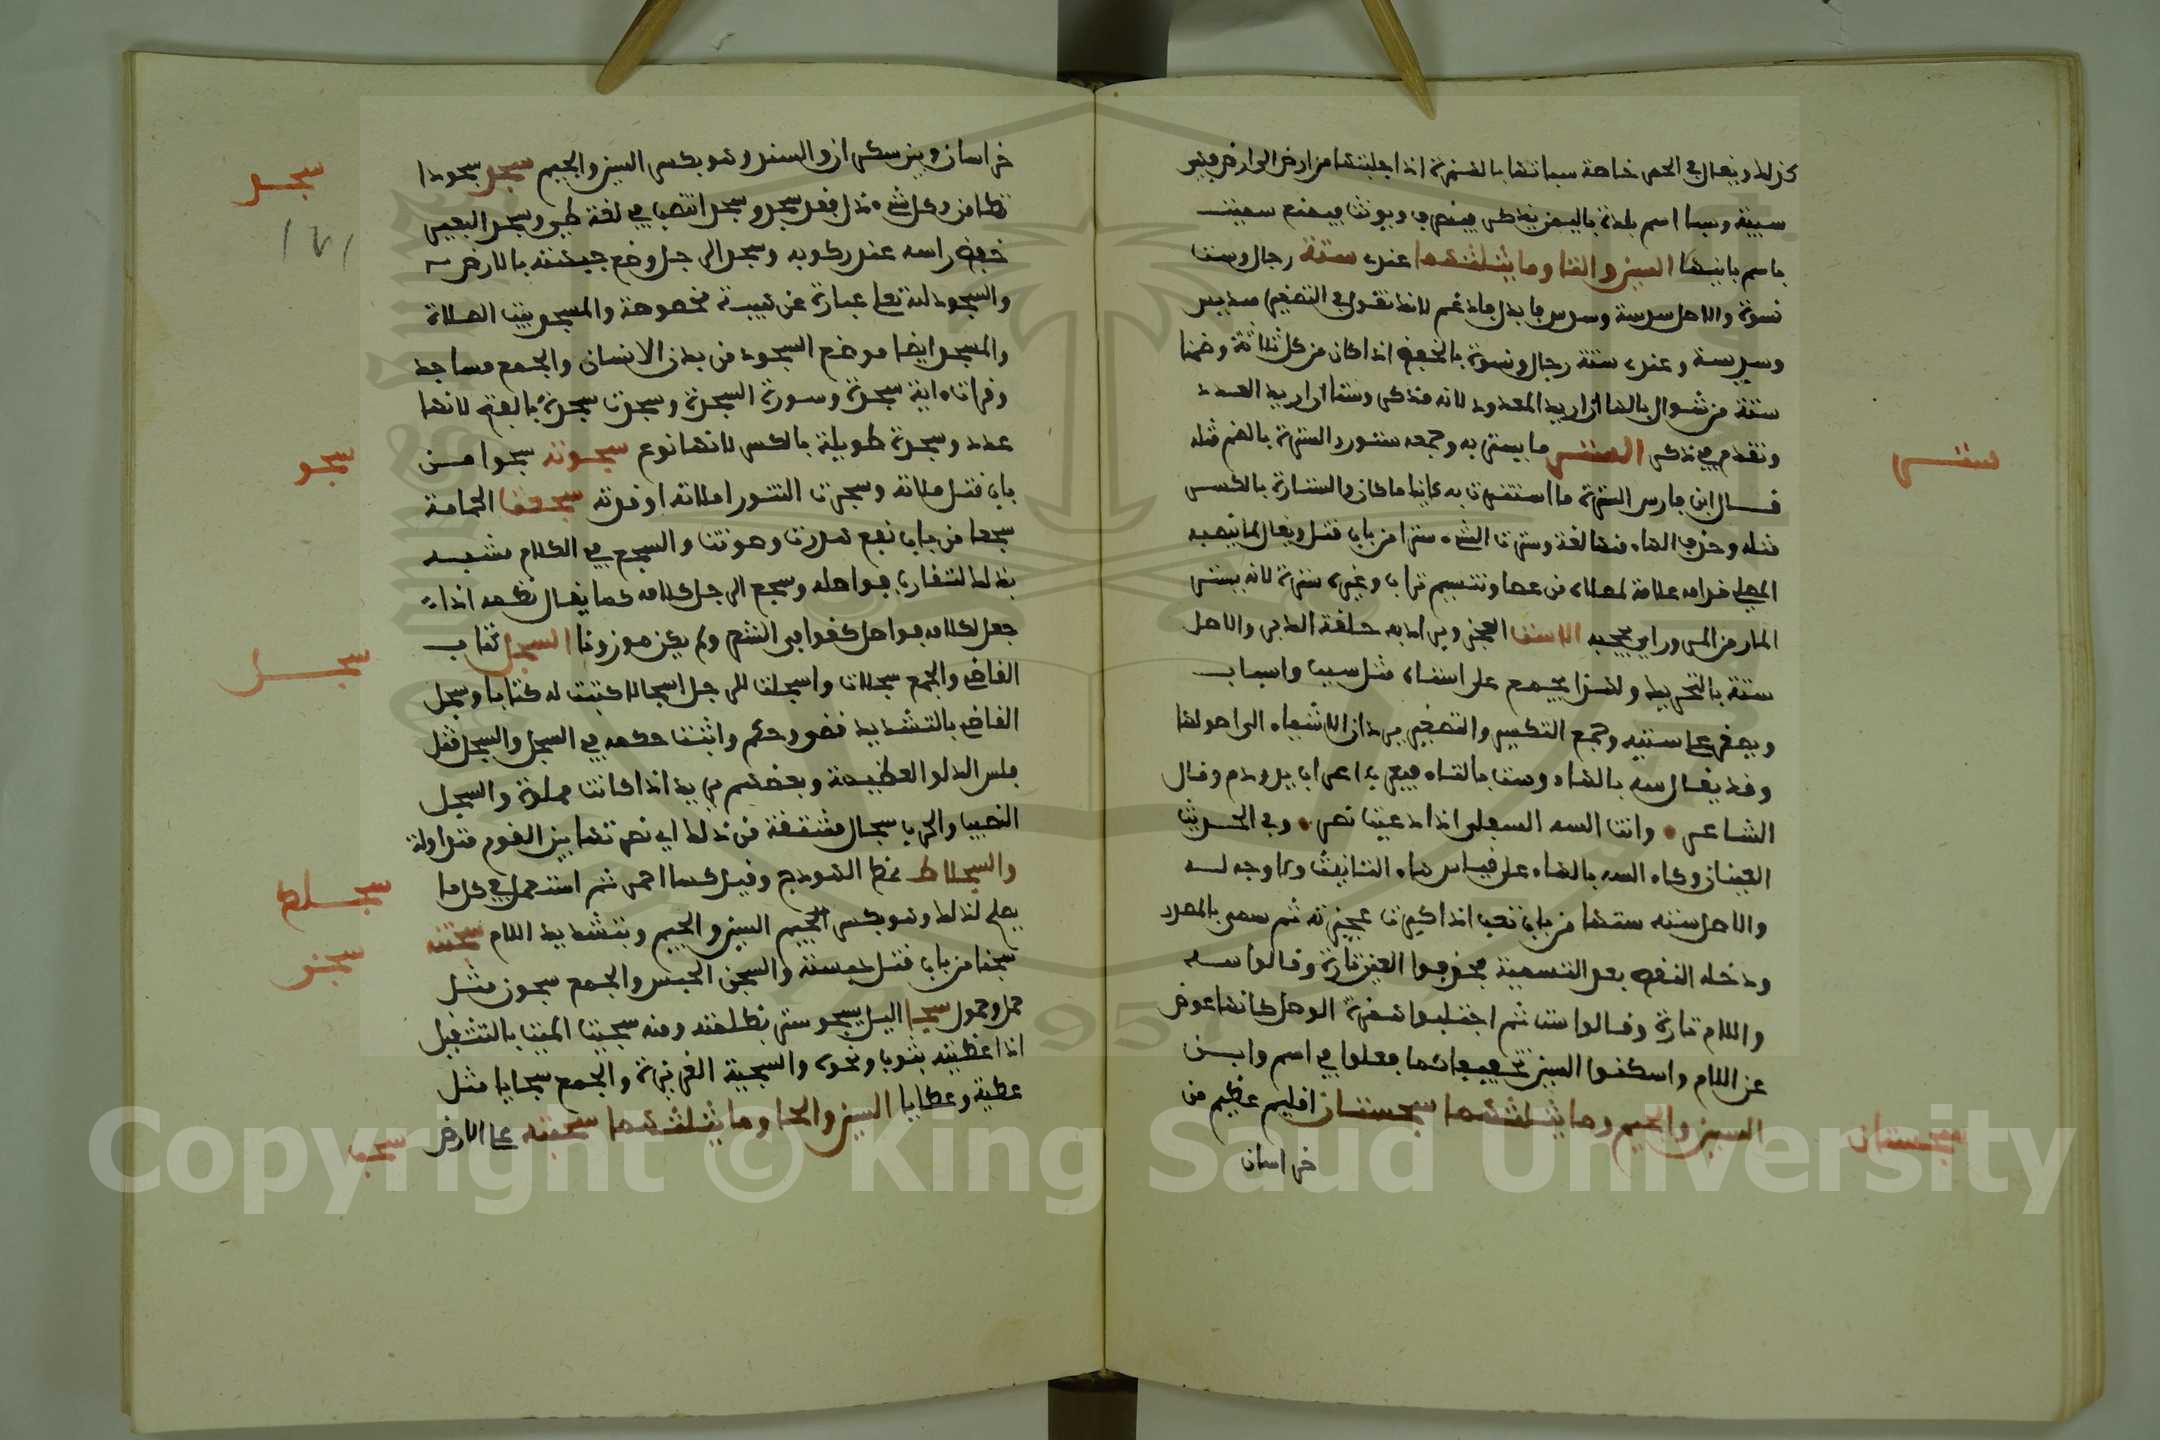 كذلك ويقال في الخمر خاصة سباتها بالهمزة اذا جلبتها من ارض الى ارض فهي
سبيئة وسبا اسم بلدة باليمن يذكر فينصرف ويونث فيمنع سميت
باسم بانيها السين والتا وما يثلثهما عندي ستة رجال وست
نسوة والاصل سدسة وسدس فابدل وادغم لانك تقول في التصغير سديس
وسديسة وعندي ستة رجال ونسوة بالخفض اذا كان من كل ثلاثة وصمنا
ستة من شوال بالها ان اريد المعدود لانه مذكر وستا ان اريد العدد
وتقدم في ذكر الستر ما يستر به وجمعه ستور والسترة بالضم مثله
قال ابن فارس السترة ما استترت به كاينا ما كان والستارة بالكسر
مثله وحذف الهاء منها لغة وسترت الشيء سترا من باب قتل ويقال لما ينصبه
المصلي قدامه علامة لمصلاه من عصا وتسنيم تراب وغيره سترة لانه يستر
المار من المرور اي يحجبه الاست العجز ويراد به حلقة الدبر والاصل
سته بالتحريك ولهذا يجمع على استاه مثل سبب واسباب
ويصغر على ستيه وجمع التكسير والتصغير يردان الاشياء الى اصولها
وقد يقال سه بالهاء وست بالتاء فيعرب اعراب يد ودم وقال
الشاعر • وانت السه السفلى اذا دعيت نصر • وفي الحديث
العينان وكاء السه بالهاء على قياس هاء التانيث ولا وجه له
والاصل سته ستها من باب تعب اذا كبرت عجيزته ثم سمي بالمصدر
ودخله النقص بعد التسمية فحذفوا العين تارة وقالوا سه
واللام تارة وقالوا ست ثم اجتلبوا همزة الوصل كانها عوض
عن اللام واسكنوا السين تخفيفا كما فعلوا في اسم وابن
السين والجيم وما يثلثهما سجستان اقليم عظيم من
خراسان
ستر
سجستان
خراسان وبين مكران والسند وهو بكسر السين والجيم سجد سجودا
تطامن وكل شيء ذل فقد سجد وسجد انتصب في لغة طي وسجد البعير
خفض راسه عند ركوبه وسجد الرجل وضع جبهته بالارض
والسجود لله تعا عبارة عن هيئة مخصوصة والمسجد بيت الصلاة
والمسجد ايضا موضع السجود من بدن الانسان والجمع مساجد
وقرات اية سجدة وسورة السجدة وسجدت سجدة بالفتح لانها
عدد وسجدة طويلة بالكسر لانها نوع سجرته سجرا من
باب قتل ملاته وسجرت التنور املاته اوقدته سجعت الحمامة
سجعا من باب نفع هدرت وصوتت والسجع في الكلام مشبه
بذلك لتقارب فواصله وسجع الرجل كلامه كما يقال نظمه اذا
جعل لكلامه فواصل كقوافي الشعر ولم يكن موزونا السجل كتاب
القاضي والجمع سجلات واسجلت للرجل اسجالا كتبت له كتابا وسجل
القاضي بالتشديد قضى وحكم واثبت حكمه في السجل والسجل مثل
فلس الدلو العظيمة وبعضهم يزيد اذا كانت مملوة والسجل
النصيب والحرب سجال مشتقة من ذلك اي نصرتها بين القوم متداولة
والسجلاط نمط الهودج وقيل كسا احمر ثم استعمل في كل ما
يصلح لذلك وهو بكسر الجيم السين والجيم وبتشديد اللام سجنته
سجنا من باب قتل حبسته والسجن الحبس والجمع سجون مثل
حمل وحمول سجا الليل يسجو ستر بظلمته ومنه سجيت الميت بالتثقيل
اذا غطيته بثوب ونحوه والسجية الغريزة والجمع سجايا مثل
عطية وعطايا السين والحا وما يثلثهما سحبته على الارض
سجد
١٧١
سجر
سجل
سجلط
سجن
سحب
Copyright © King Saud University